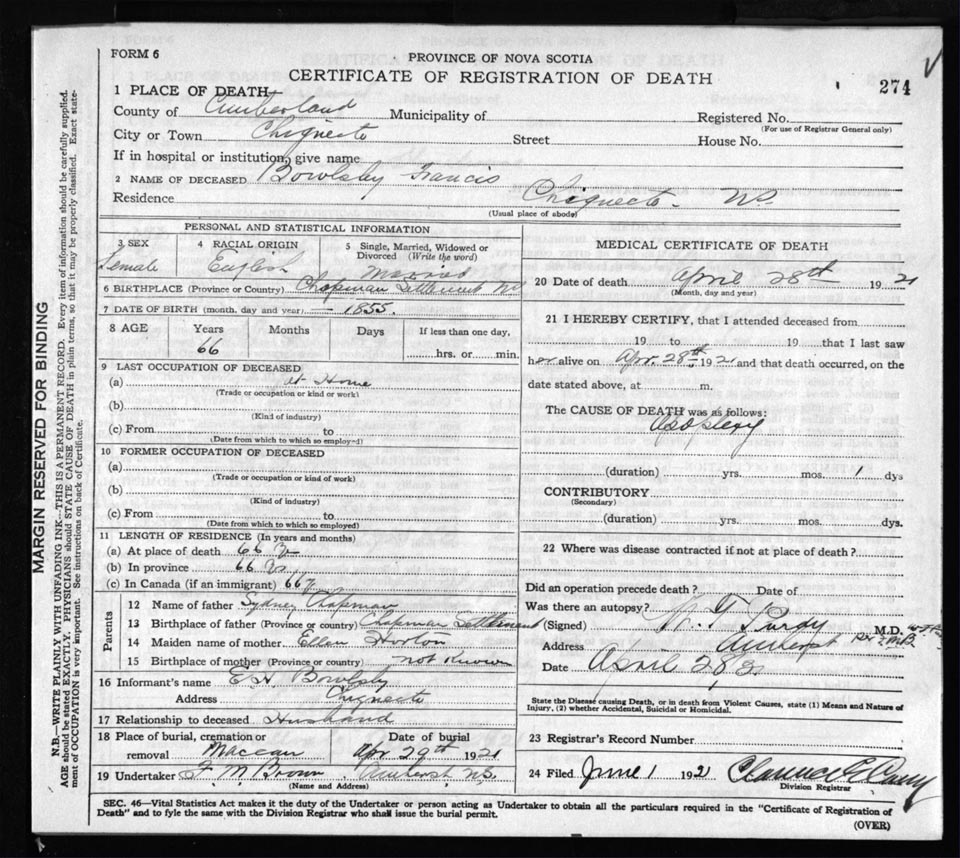 FORM 6
PROVINCE OF NOVA SCOTIA
CERTIFICATE OF REGISTRATION OF DEATH
274
1 PLACE OF DEATH
County of Cumberland Municipality of Registered No.
(For use of Registrar General only)
City or Town Chignecto Street House No.
If in hospital or institution, give name
2 NAME OF DECEASED Bowlsby Francis
Residence Chignecto. NS.
(Usual place of abode)
PERSONAL AND STATISTICAL INFORMATION
3 SEX Female
4 RACIAL ORIGIN English
5 Single, Married, Widowed or Divorced (Write the word) Married
6 BIRTHPLACE (Province or Country) Chapman Settlement NS
7 DATE OF BIRTH (month, day and year) - 1855.
8 AGE Years Months Days If less than one day,
66 hrs. or min.
9 LAST OCCUPATION OF DECEASED
(a) at Home
(Trade or occupation or kind or work)
(b)
(Kind of industry)
(c) From to
(Date from which to which so employed)
10 FORMER OCCUPATION OF DECEASED
(a)
(Trade or occupation or kind of work)
(b)
(Kind of industry)
(c) From to
(Date from which to which so employed)
11 LENGTH OF RESIDENCE (In years and months)
(a) At place of death 66 y
(b) In province 66 y
(c) In Canada (if an immigrant) 66 y
Parents
12 Name of father Sydney Chapman
13 Birthplace of father (Province or country) Chapman Settlement
14 Maiden name of mother Ellen Horton
15 Birthplace of mother (Province or country) not Known
16 Informant's name E H. Bowlsby
Address Chignecto
17 Relationship to deceased Husband
18 Place of burial, cremation or removal Maccan
Date of burial Apr 29th 1921
19 Undertaker F. M Brown. Amherst NS.
(Name and Address)
MEDICAL CERTIFICATE OF DEATH
20 Date of death April 28th 1921
(Month, day and year)
21 I HEREBY CERTIFY, that I attended deceased from
19 to 19 that I last saw
her alive on Apr. 28th 1921 and that death occurred, on the
date stated above, at m.
The CAUSE OF DEATH was as follows:
Apoplexy
(duration) yrs. mos. 1 dys
CONTRIBUTORY
(Secondary)
(duration) yrs. mos. dys.
22 Where was disease contracted if not at place of death?
Did an operation precede death? Date of
Was there an autopsy?
(Signed) Purdy M.D.
Address Amherst
Date April 28/21
State the Disease causing Death, or in death from Violent Causes, state (1) Means and Nature of
Injury, (2) whether Accidental, Suicidal or Homicidal.
23 Registrar's Record Number
24 Filed June 1 1921
Division Registrar
SEC. 46—Vital Statistics Act makes it the duty of the Undertaker or person acting as Undertaker to obtain all the particulars required in the "Certificate of Registration of
Death" and to fyle the same with the Division Registrar who shall issue the burial permit.
(OVER)
MARGIN RESERVED FOR BINDING
N.B.—WRITE PLAINLY WITH UNFADING INK—THIS IS A PERMANENT RECORD. Every item of information should be carefully supplied.
AGE should be stated EXACTLY. PHYSICIANS should STATE CAUSE OF DEATH in plain terms, so that it may be properly classified. Exact state-
ment of OCCUPATION is very important. See instructions on back of Certificate.